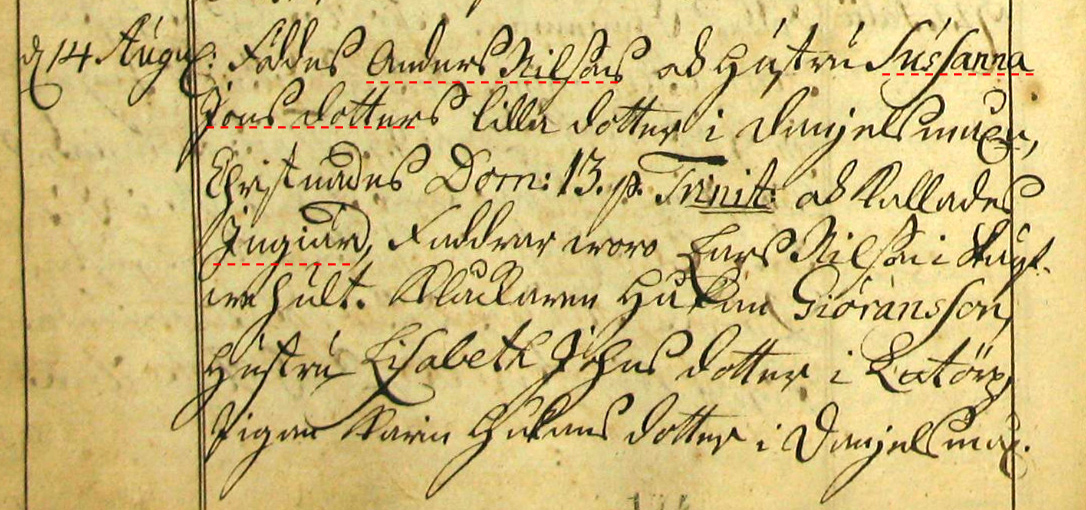 d 14 Augus: Föddes Anders Nilssons och hustru Sussanna
Jons dotters lilla dotter i Danjelsmåxn,
Christnades Dom: 13. p. Trinit: och kallades
Ingiärd, Faddrar woro Lars Nilsson i
hult. Klåckaren Håkan Giöransson,
Hustru Lisabeth Johns dotter i Latörp,
Pigan Karin Håkans dotter i Danjelsmåx.